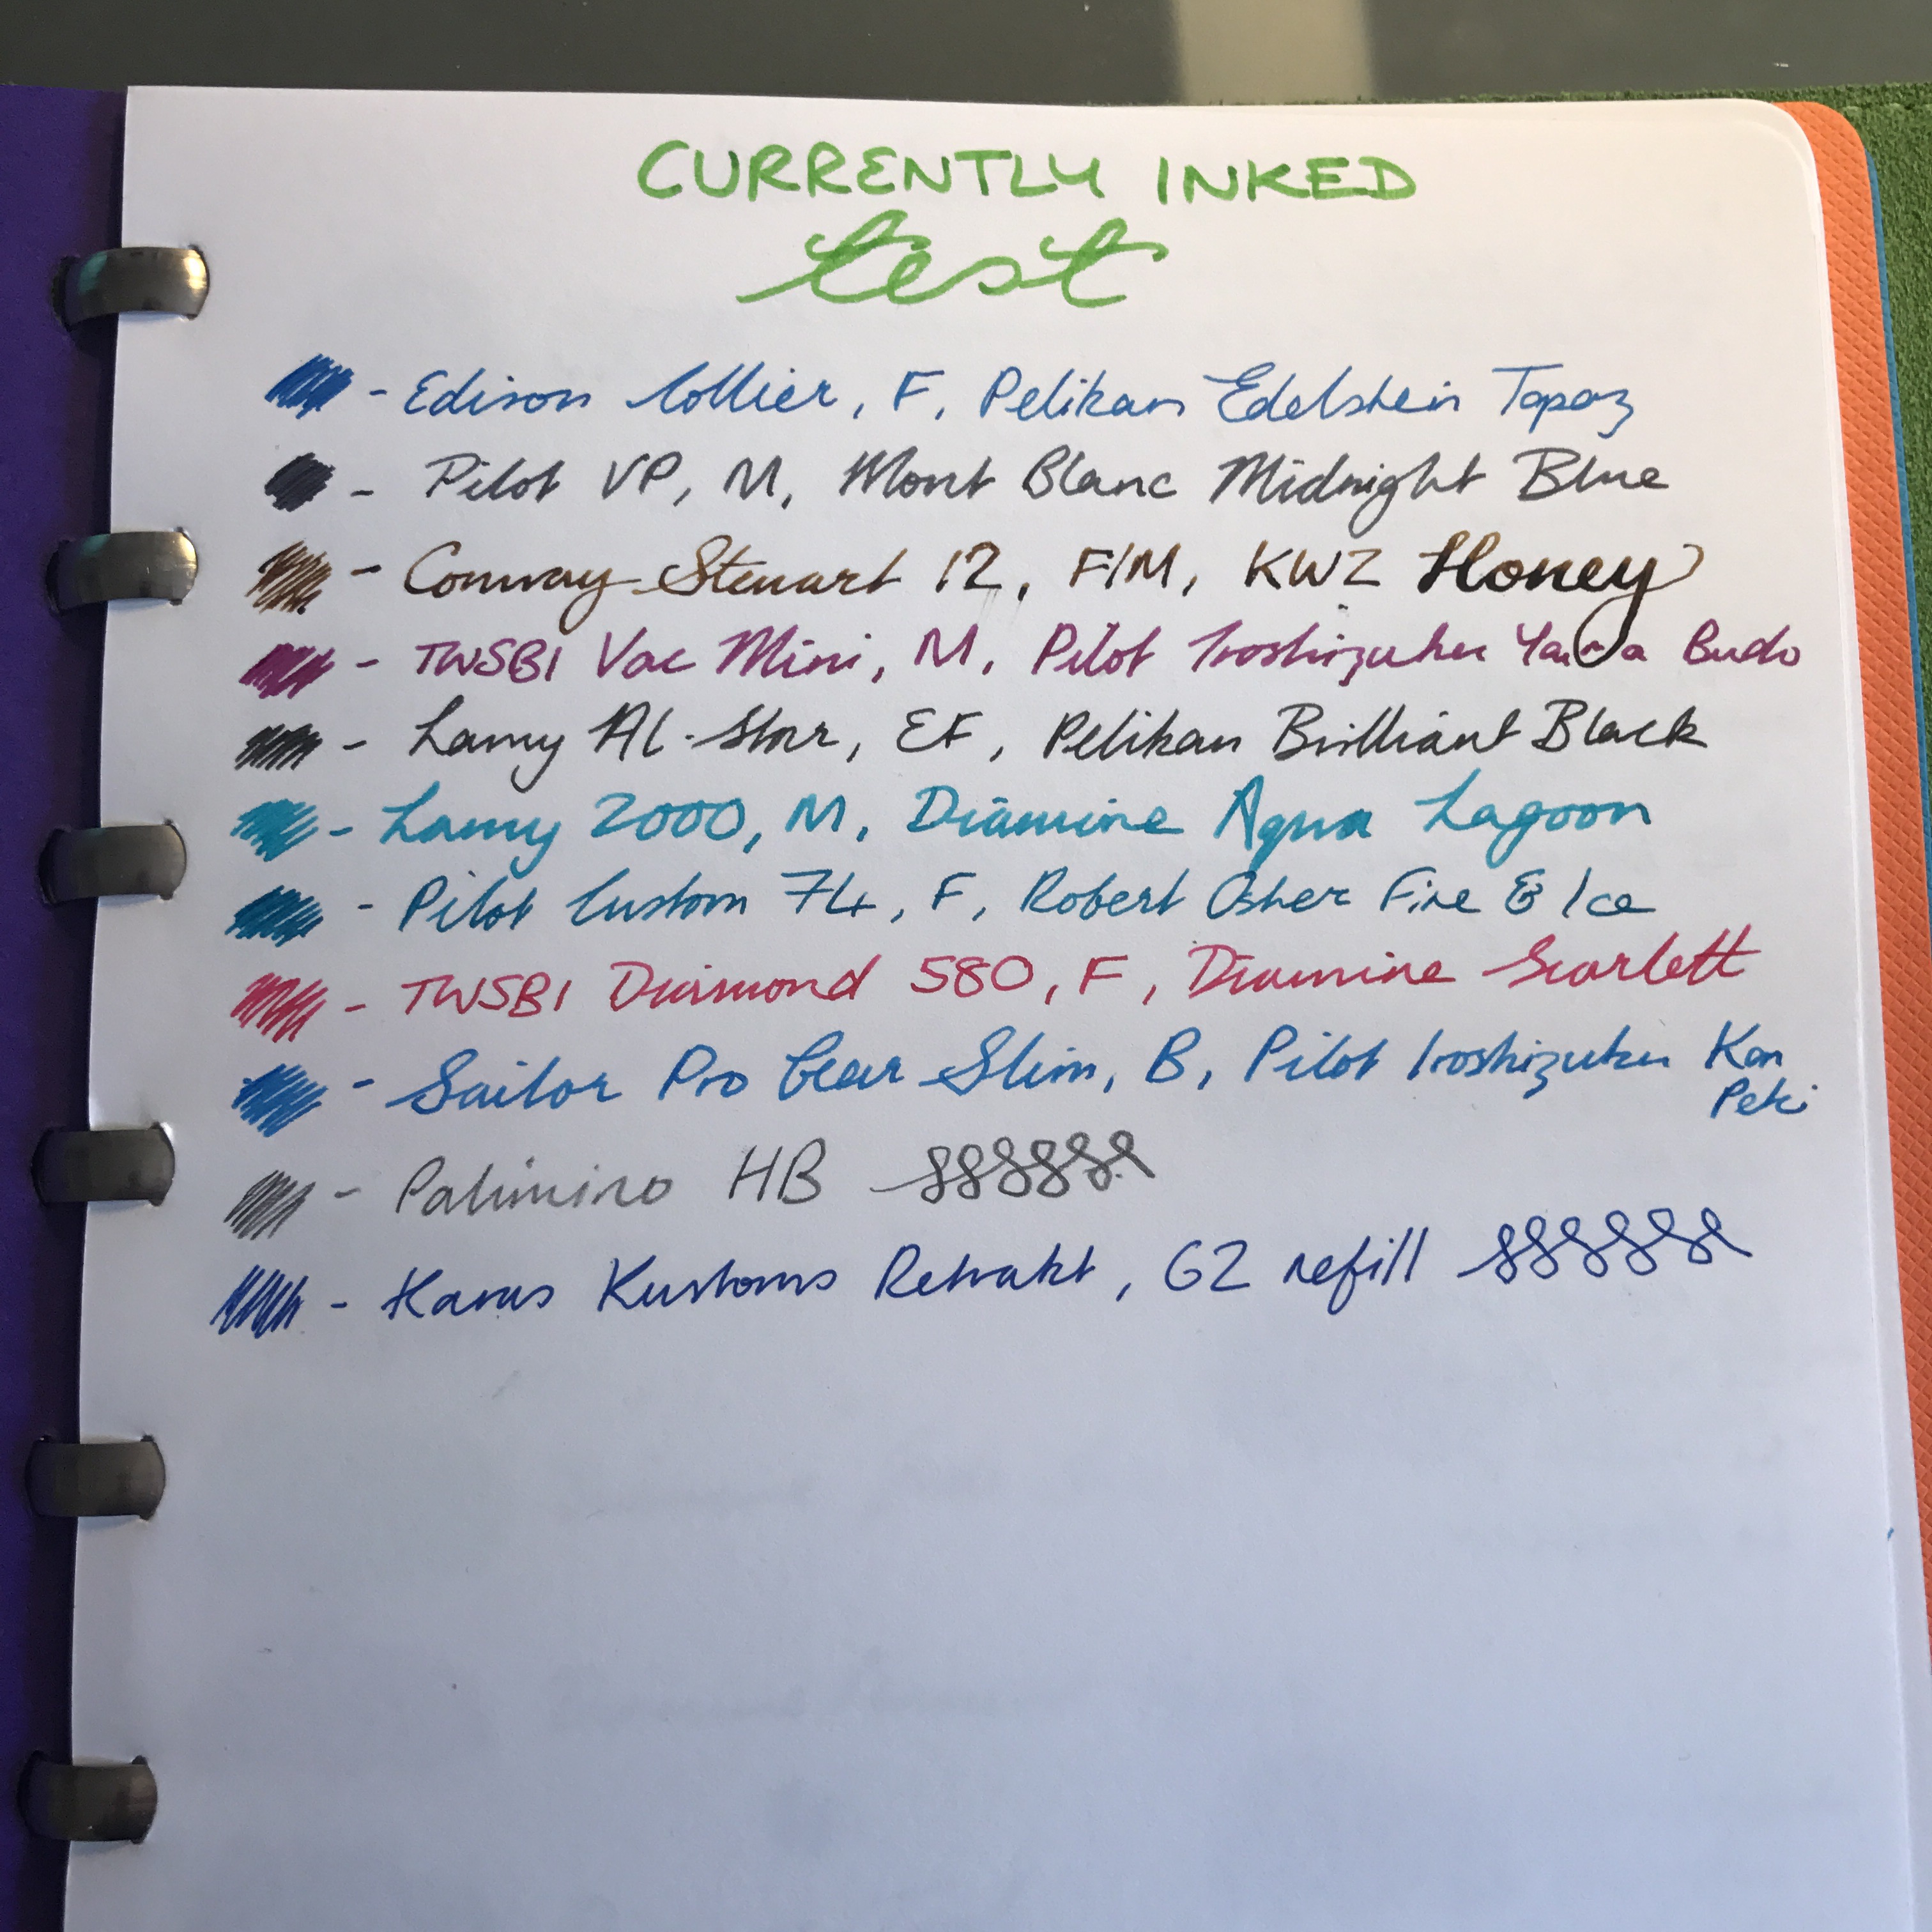 CURRENTLY INKED
test
- Edison Collier, F, Pelikan Edelstein Topaz
- Pilot VP, M, Mont Blanc Midnight Blue
- Conway Stewart 12, F/M, KWZ Honey
- TWSBI Vac Mini, M, Pilot Iroshizuku Yama Budo
- Lamy Al-Star, EF, Pelikan Brilliant Black
- Lamy 2000, M, Diamine Aqua Lagoon
- Pilot Custom 74, F, Robert Osher Fire & Ice
- TWSBI Diamond 580, F, Diamine Scarlett
- Sailor Pro Gear Slim, B, Pilot Iroshizuku Kon
Peki
- Palimino HB
- Karas Kustoms Retrakt, G2 refill